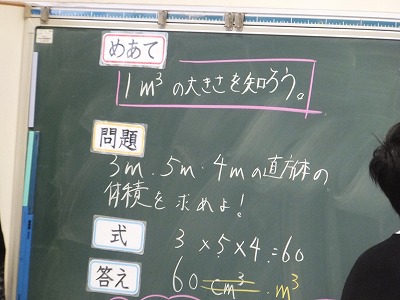 めあて
1m³の大きさを知ろう。
問題
3m.5m.4mの直方体の
体積を求めよ!
式
3×5×4=60
答え
60cm³.m³